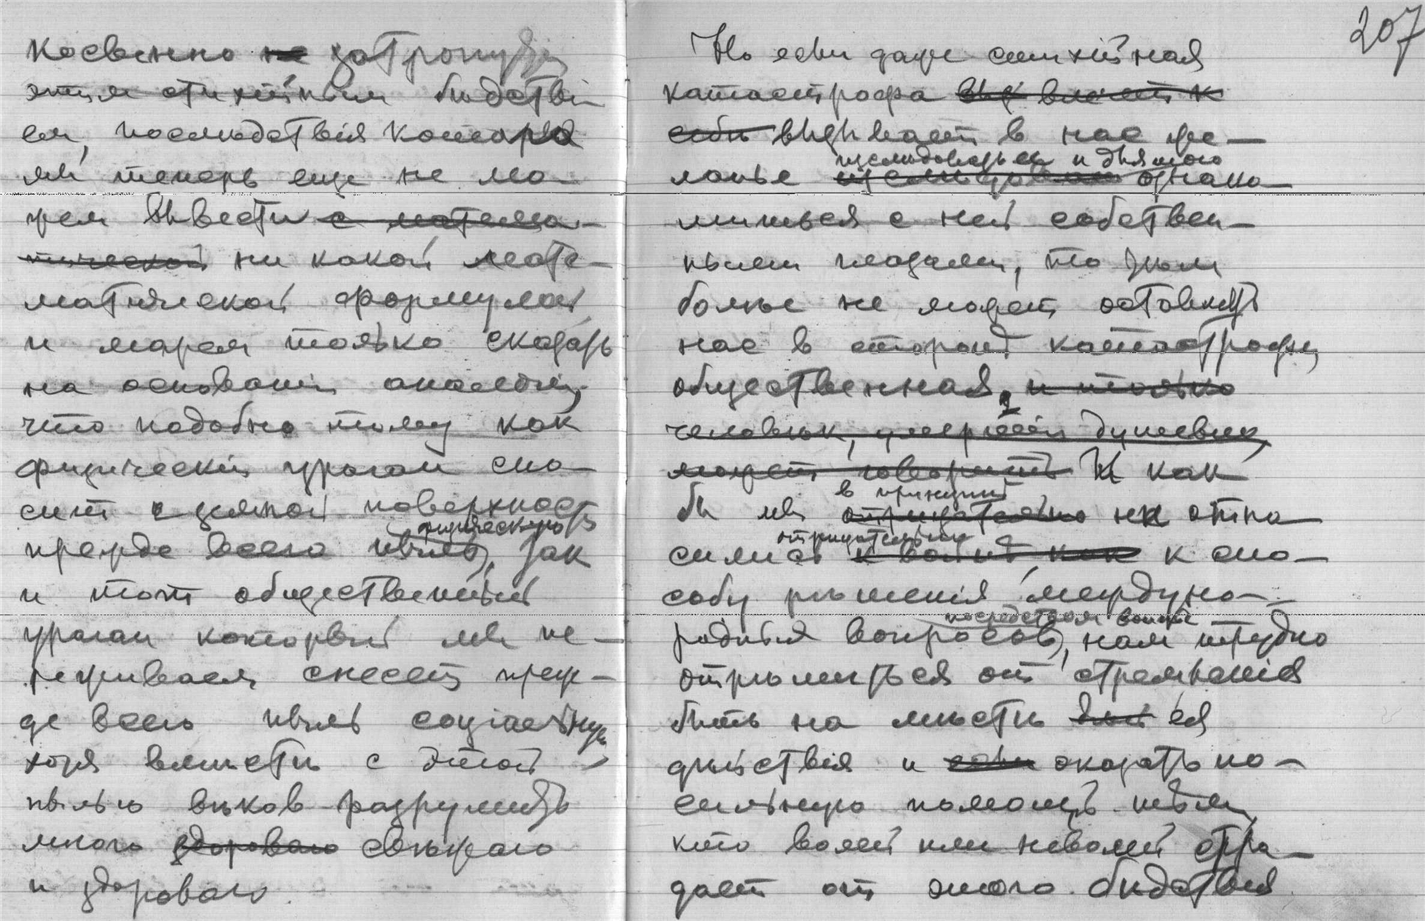 косвенно не затронут
этим стихійным бѣдстві-
ем, послѣдствія котораго
мы теперь еще не мо-
жем вывести с матема-
тической ни какой мате-
матической формулой
и можем только сказать
на основаніи аналогіи,
что подобно тому как
физическій ураган сно-
сит с земной поверхности
прежде всего физическую пыль, так
и тот общественный
ураган который мы пе-
реживаем снесет преж-
де всего пыль соціальную
хотя вмѣстѣ с этой
пылью вѣков разрушит
много здороваго свѣжаго
и здороваго.
207
Но если даже стихійная
катастрофа влечет к
себѣ вызывает в нас же-
ланье изслѣдовать ея и
однако
миться с ней собствен-
ными глазами, то тѣм
болѣе не может оставить
нас в сторонѣ катастрофа
общественная, и только
человѣк, умершій душевно
может говорить И как
бы мы в принципѣ отрицательно не отно-
сились отрицательно к войнѣ как к спо-
собу рѣшенія междуна-
родных вопросов посредством войны, нам трудно
отрѣшиться от стремленія
быть на мѣстѣ ея
дѣйствія и оказать по-
сильную помощь тѣм
кто волей или неволей стра-
дает от этого бѣдствія